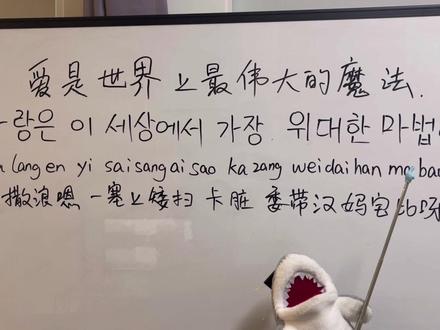 爱是世界上最伟大的魔法.
랑은 이 세상에서 가장 위대한 마법
lang en yi sai sang ai sao ka zang wei dai han ma
撒浪嗯 一塞上矮扫 卡脏 委带汉妈宝